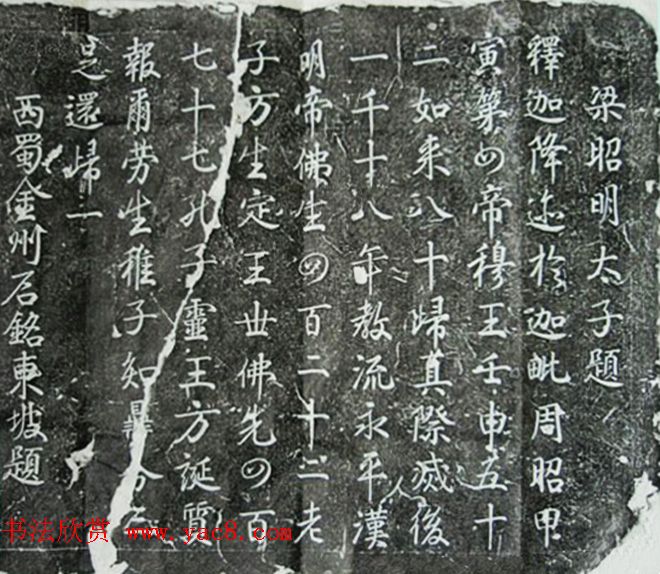 梁昭明太子題
釋迦降迹於伽毗周昭甲
寅第四帝穆王壬申五十
二如来八十歸真際滅後
一千十八年教流永平漢
明帝佛生四百二十二老
子方生定王世佛先四百
七十七孔子靈王方誕質
報爾勞生稚子知 分
是還歸一
西蜀金州石銘東坡題
书法欣赏 www.yac8.com